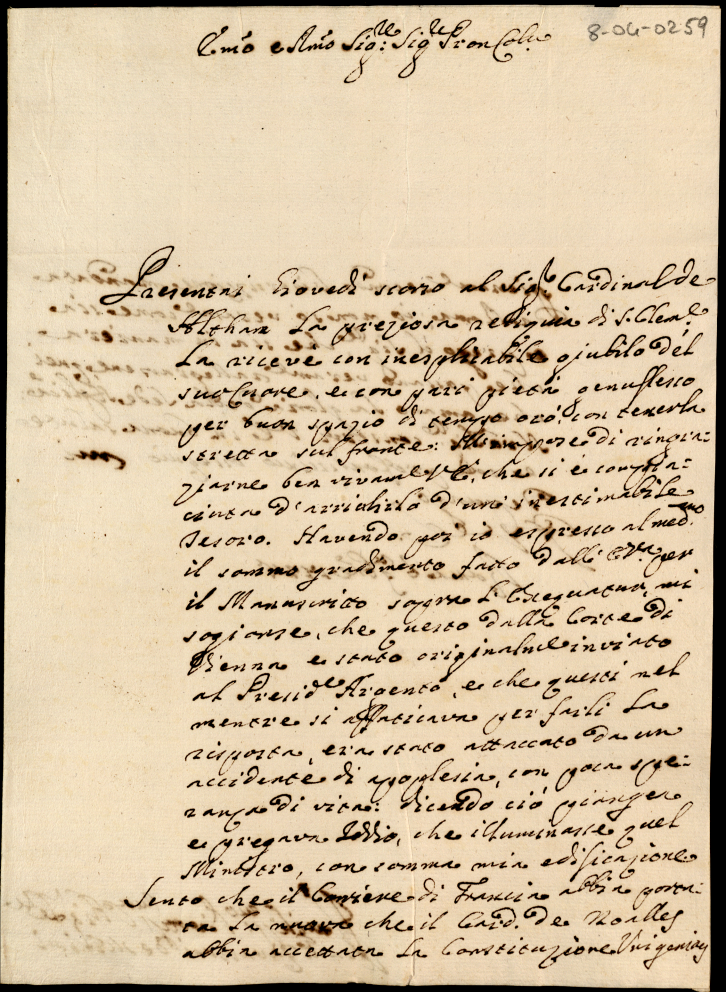 8-04-0259
Emo e Rmo Sigre: Sigre Pron Colmo
Presentai Giovedì scorso al Sigr Cardinal de
Althann la preziosa reliquia di S. Clem.e
La ricevè con inesplicabile giubilo del
suo Cuore, e con pari pietà genuflesso
per buon spazio di tempo orò, con tenerla
stretta sul fronte: M'impose di ringra-
ziarne ben vivame V.E., che si è compia-
ciuta d'arrichirlo d'un inestimabile
Tesoro. Havendo poi io espresso al medmo
il sommo gradimento fatto dall' E.Vra per
il Manuscritto sopra l'Exequatur, mi
sogionse, che questo dalla Corte di
Vienna e stato originalme inviato
al Preside Argento, e che questi nel
mentre si affaticava per farli la
risposta, era stato attaccato da un
accidente di apoplesia, con poca spe-
ranza di vita: dicendo ciò piangea
e pregava Iddio, che illuminasse quel
Ministro, con somma mia edificazione
Sento che il Corriere di Francia abbia porta-
ta la nuova che il Card. de Noalles
abbia accettata la Constituzione Unigenitus